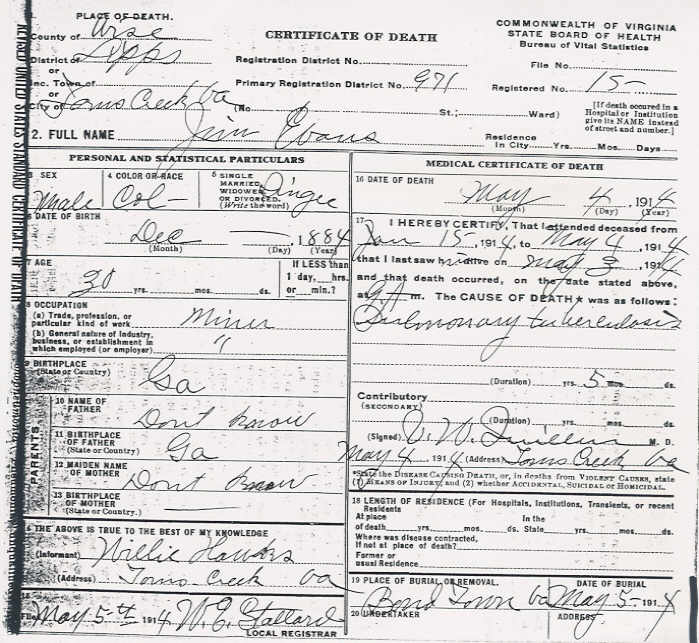 1. PLACE OF DEATH.
County of Wise
District of Lipps
or
Inc. Town of
or
City of Toms Creek Va
CERTIFICATE OF DEATH
Registration District No.
Primary Registration District No. 971
(No. St.; Ward)
COMMONWEALTH OF VIRGINIA
STATE BOARD OF HEALTH
Bureau of Vital Statistics
File No.
Registered No. 15-
[If death occured in a
Hospital or Institution
give its NAME instead
of street and number.]
2. FULL NAME Jim Evans
Residence
In City Yrs. Mos. Days
REVISED UNITED STATES STANDARD CERTIFICATE OF DEATH
PERSONAL AND STATISTICAL PARTICULARS
3 SEX
Male
4 COLOR OR RACE
Col-
5 SINGLE
MARRIED,
WIDOWED
OR DIVORCED.
(Write the word)
6 DATE OF BIRTH
Dec 1884
(Month) (Day) (Year)
7 AGE
30 yrs. mos. ds.
If LESS than
1 day, hrs.
or min.?
8 OCCUPATION
(a) Trade, profession, or
particular kind of work Miner
(b) General nature of Industry,
business, or establishment in
which employed (or employer) "
9 BIRTHPLACE
(State or Country) Ga
PARENTS
10 NAME OF
FATHER Dont Know
11 BIRTHPLACE
OF FATHER Ga
(State or Country)
12 MAIDEN NAME
OF MOTHER Dont Know
13 BIRTHPLACE
OF MOTHER
(State or Country.)
14 THE ABOVE IS TRUE TO THE BEST OF MY KNOWLEDGE
(Informant) Willie
(Address) Toms Creek Va
15
Filed May 5th 1914. W. E. Stallard
LOCAL REGISTRAR
MEDICAL CERTIFICATE OF DEATH
16 DATE OF DEATH
May 4, 1914
(Month) (Day) (Year)
17 I HEREBY CERTIFY, That I attended deceased from
Jan 15-, 1914, to May 4, 1914
that I last saw him alive on May 3, 1914
and that death occurred, on the date stated above,
at 9 A. m. The CAUSE OF DEATH★ was as follows:
Pulmonary tuberculosis
(Duration) yrs. 5 mos. ds.
Contributory
(SECONDARY)
(Duration) yrs. mos. ds.
(Signed) M. D.
May 4, 1914 (Address) Toms Creek Va
*State the DISEASE CAUSING DEATH, or, in deaths from VIOLENT CAUSES, state
(1) MEANS OF INJURY, and (2) whether ACCIDENTAL, SUICIDAL or HOMICIDAL.
18 LENGTH OF RESIDENCE (For Hospitals, Institutions, Transients, or recent
Residents
At place In the
of death yrs. mos. ds. State yrs. mos. ds.
Where was disease contracted,
If not at place of death?
Former or
usual Residence
19 PLACE OF BURIAL OR REMOVAL.
Bond Town Va
DATE OF BURIAL
May 5-, 1914
20 UNDERTAKER
ADDRESS